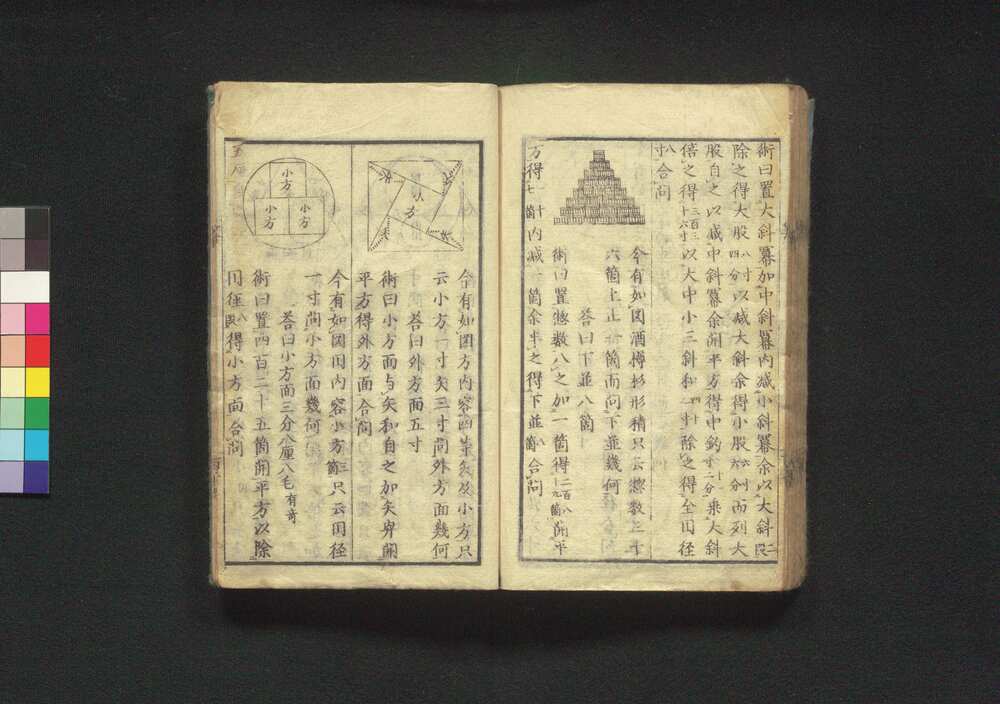 術曰置大斜冪加中斜冪内减小斜冪余以大斜二段
除之得大股八寸四分以减大斜余得小股六寸六分而列大
股自之以减中斜冪余開平方得中鈎
乗大斜
倍之得
以大中小三斜和
除之得全円径
八寸合問
今有如図酒樽杉形積只云惣数三十
六箇上止一箇而問下並幾何
答曰下並八箇
術曰置惣数八之加一箇得二百八十九箇開平
方得一十七箇内减一箇余半之得下並八箇合問
小方
矢
矢
矢
矢
今有如図方内容四圭矢及小方只
云小方一寸矢三寸問外方面幾何
答曰外方面五寸
術曰小方面与矢和自之加矢冪開
平方得外方面合問
小方
小方
小方
今有如図円内容小方三箇只云円径
一寸問小方面幾何
答曰小方面三分八厘八毛有奇
術曰置四百二十五箇開平方以除
円径八段得小方面合問